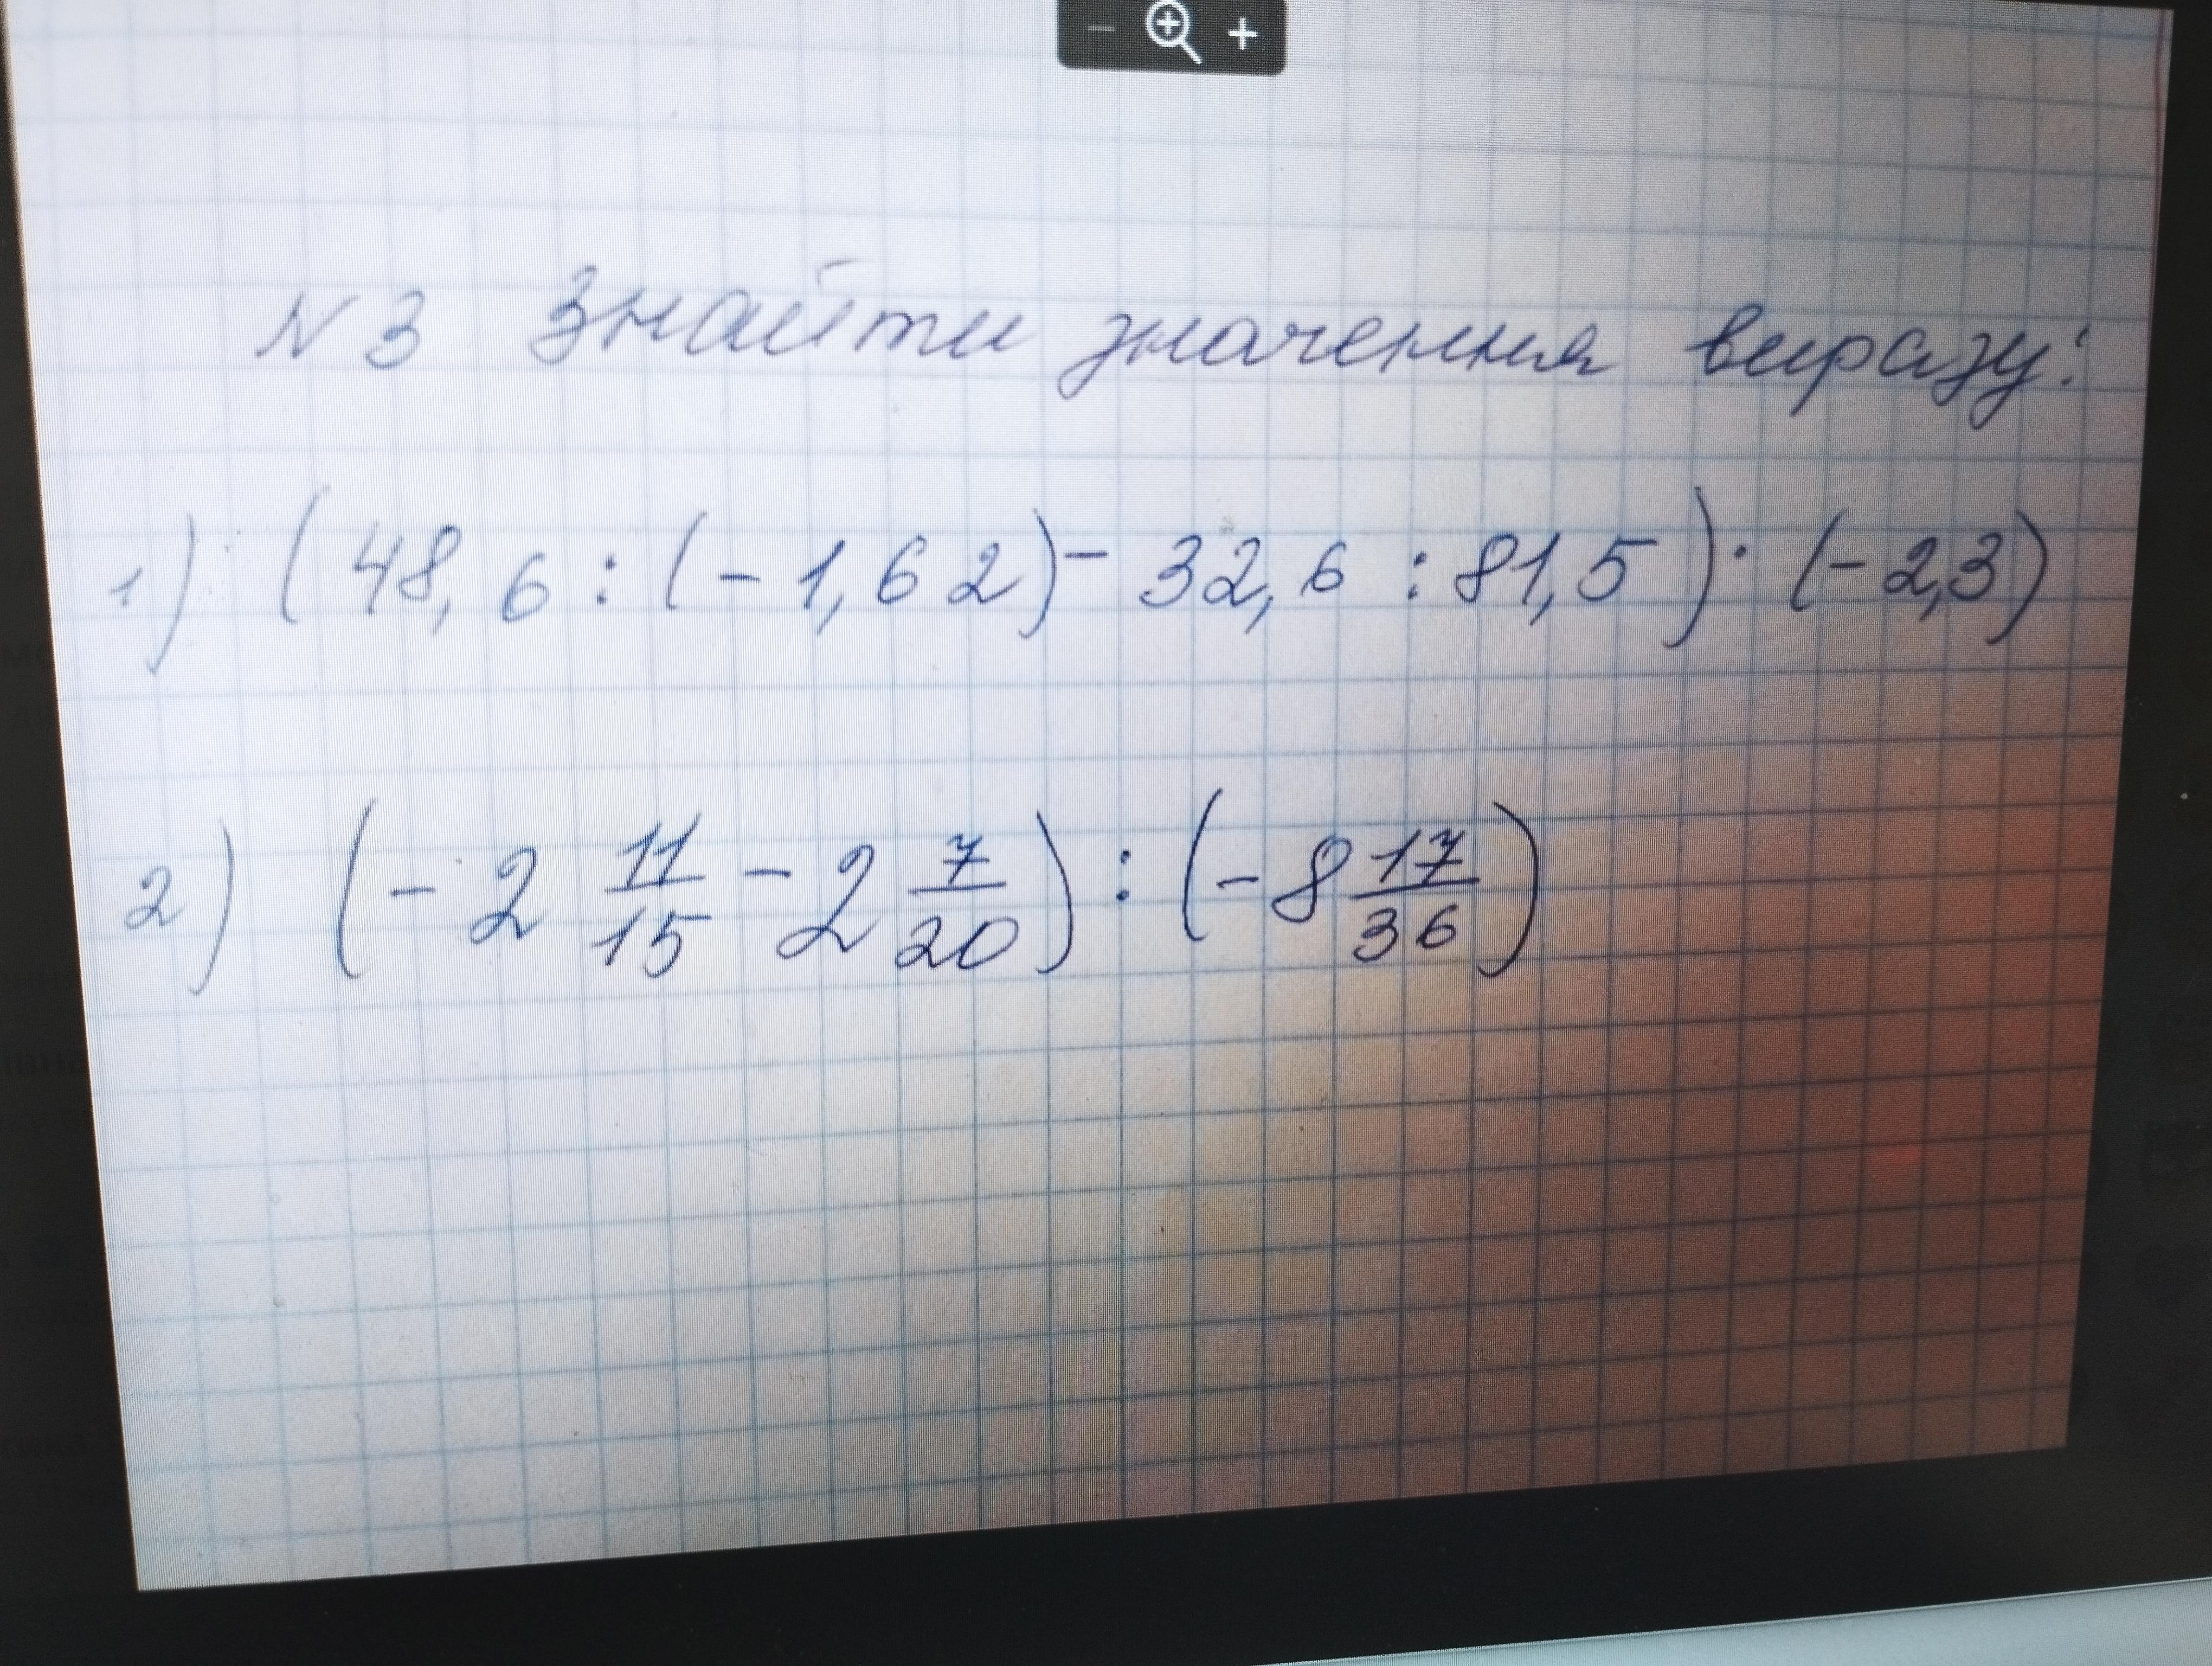 N 3 Знайти значення виразу:
1) (48,6 : (-1,62) - 32,6 : 81,5) · (-2,3)
2) (-2 11/15 - 2 7/20) : (-8 17/36)